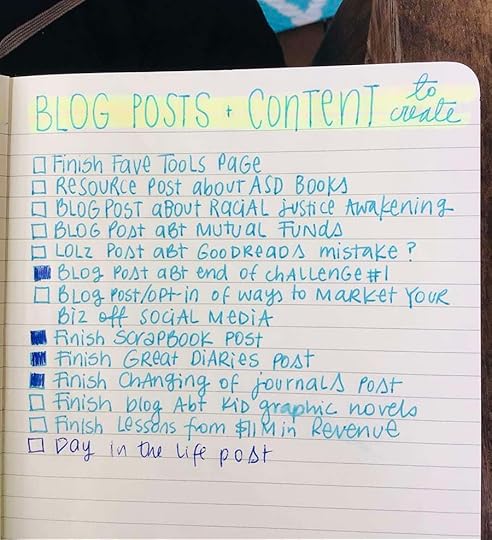 BLOG POSTS + CONTENT to create
Finish Fave Tools Page
Resource Post about ASD Books
Blog Post about Racial Justice Awakening
Blog Post abt Mutual Funds
LOLZ Post abt GoodReads mistake?
Blog Post abt end of challenge #1
Blog Post/opt-in of ways to Market Your
Biz off Social Media
Finish Scrapbook Post
Finish Great Diaries Post
Finish Changing of Journals Post
Finish blog Abt Kid graphic novels
Finish Lessons from $11M in Revenue
Day in the life post